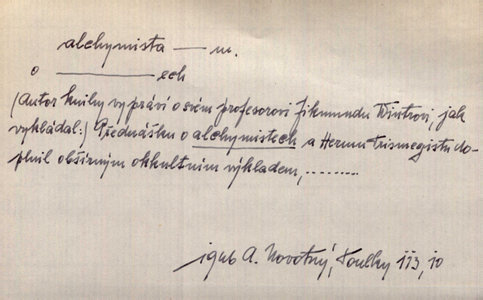 alchymista — m.
o ———— ech
(Autor knihy vypráví o svém profesorovi Zikmundu Wintrovi, jak
vykládal:) Přednášku o alchymistech a Hermu Trismegistu do-
plnil obšírným okkultním výkladem, .........
1946 A. Novotný, Toulky 113, 10